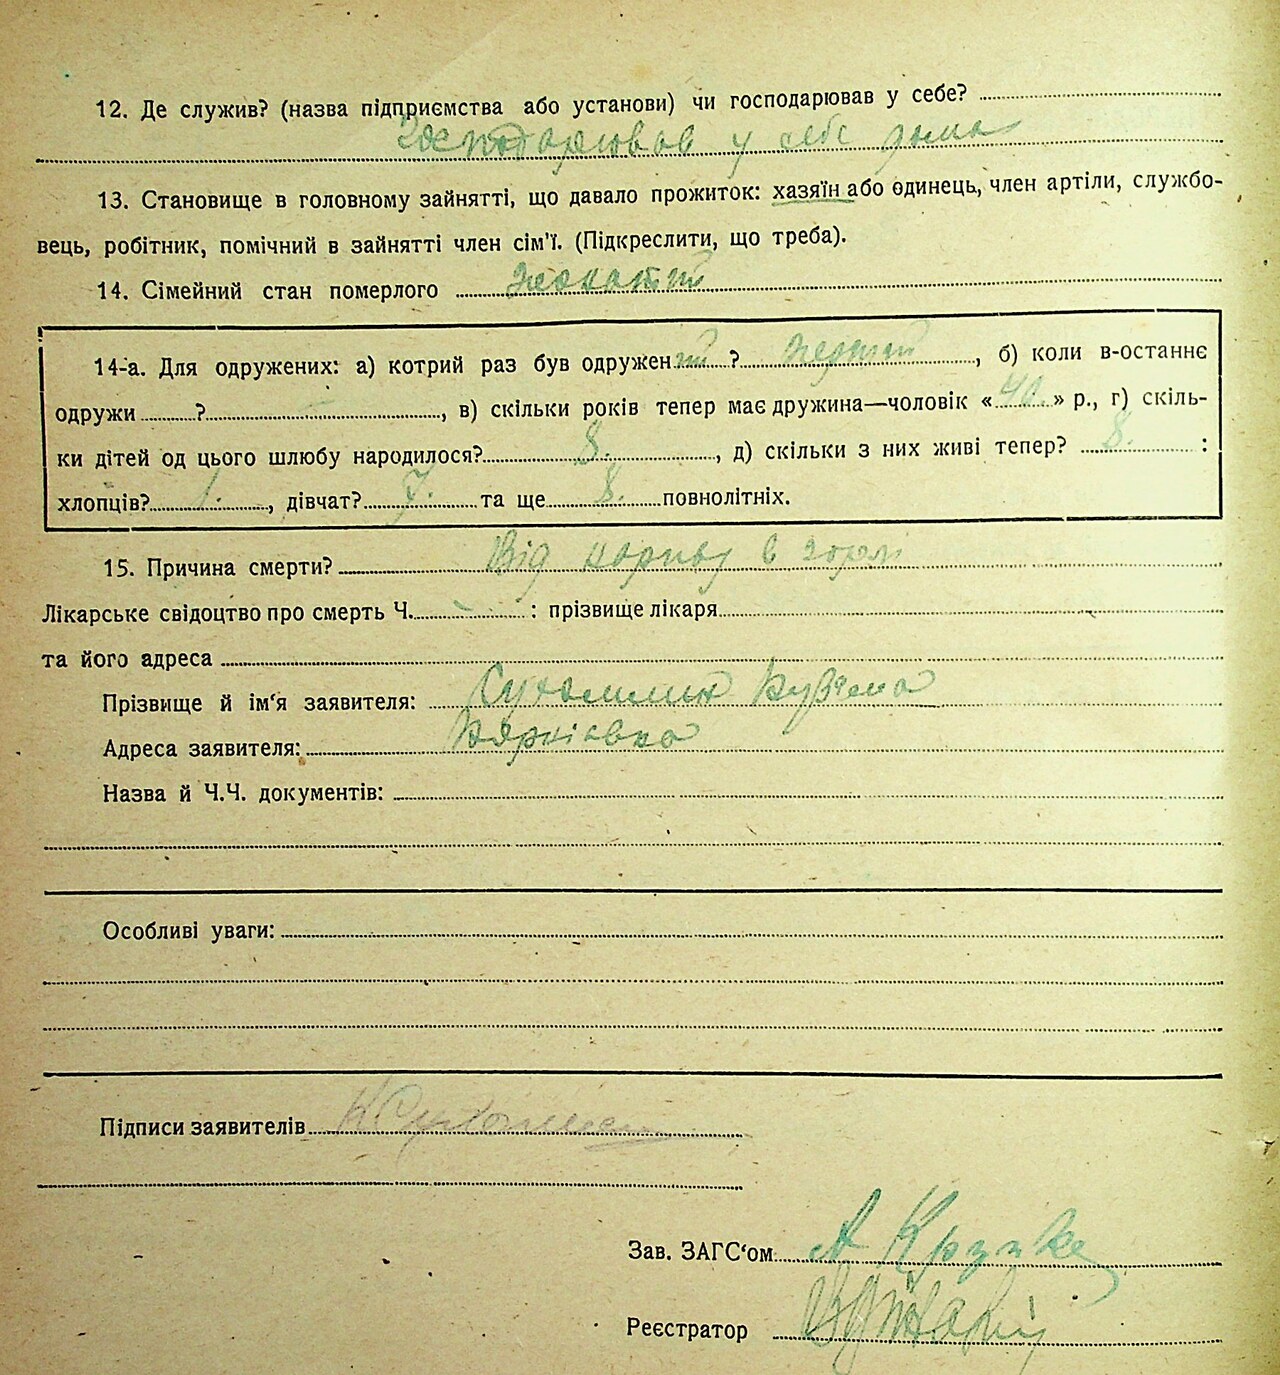 12. Де служив? (назва підприємства або установи) чи господарював у себе?
Господарював у себе дома
13. Становище в головному зайнятті, що давало прожиток: хазяїн або одинець, член артіли, службо-
вець, робітник, помічний в зайнятті член сім'ї. (Підкреслити, що треба).
14. Сімейний стан померлого жонатий
14-а. Для одружених: а) котрий раз був одружений? первий, б) коли в-останнє
одружи ? , в) скільки років тепер має дружина—чоловік «40.» р., г) скіль-
ки дітей од цього шлюбу народилося? 8. , д) скільки з них живі тепер? 8. :
хлопців? 1. , дівчат? 7. та ще 8. повнолітніх.
15. Причина смерти? Від нариву в горлі
Лікарське свідоцтво про смерть Ч. - : прізвище лікаря
та його адреса
Прізвище й ім'я заявителя: Сухомлин Кузьма
Адреса заявителя:
Назва й Ч.Ч. документів:
Особливі уваги:
Підписи заявителів К Сухомлин
Зав. ЗАГС'ом А
Реєстратор